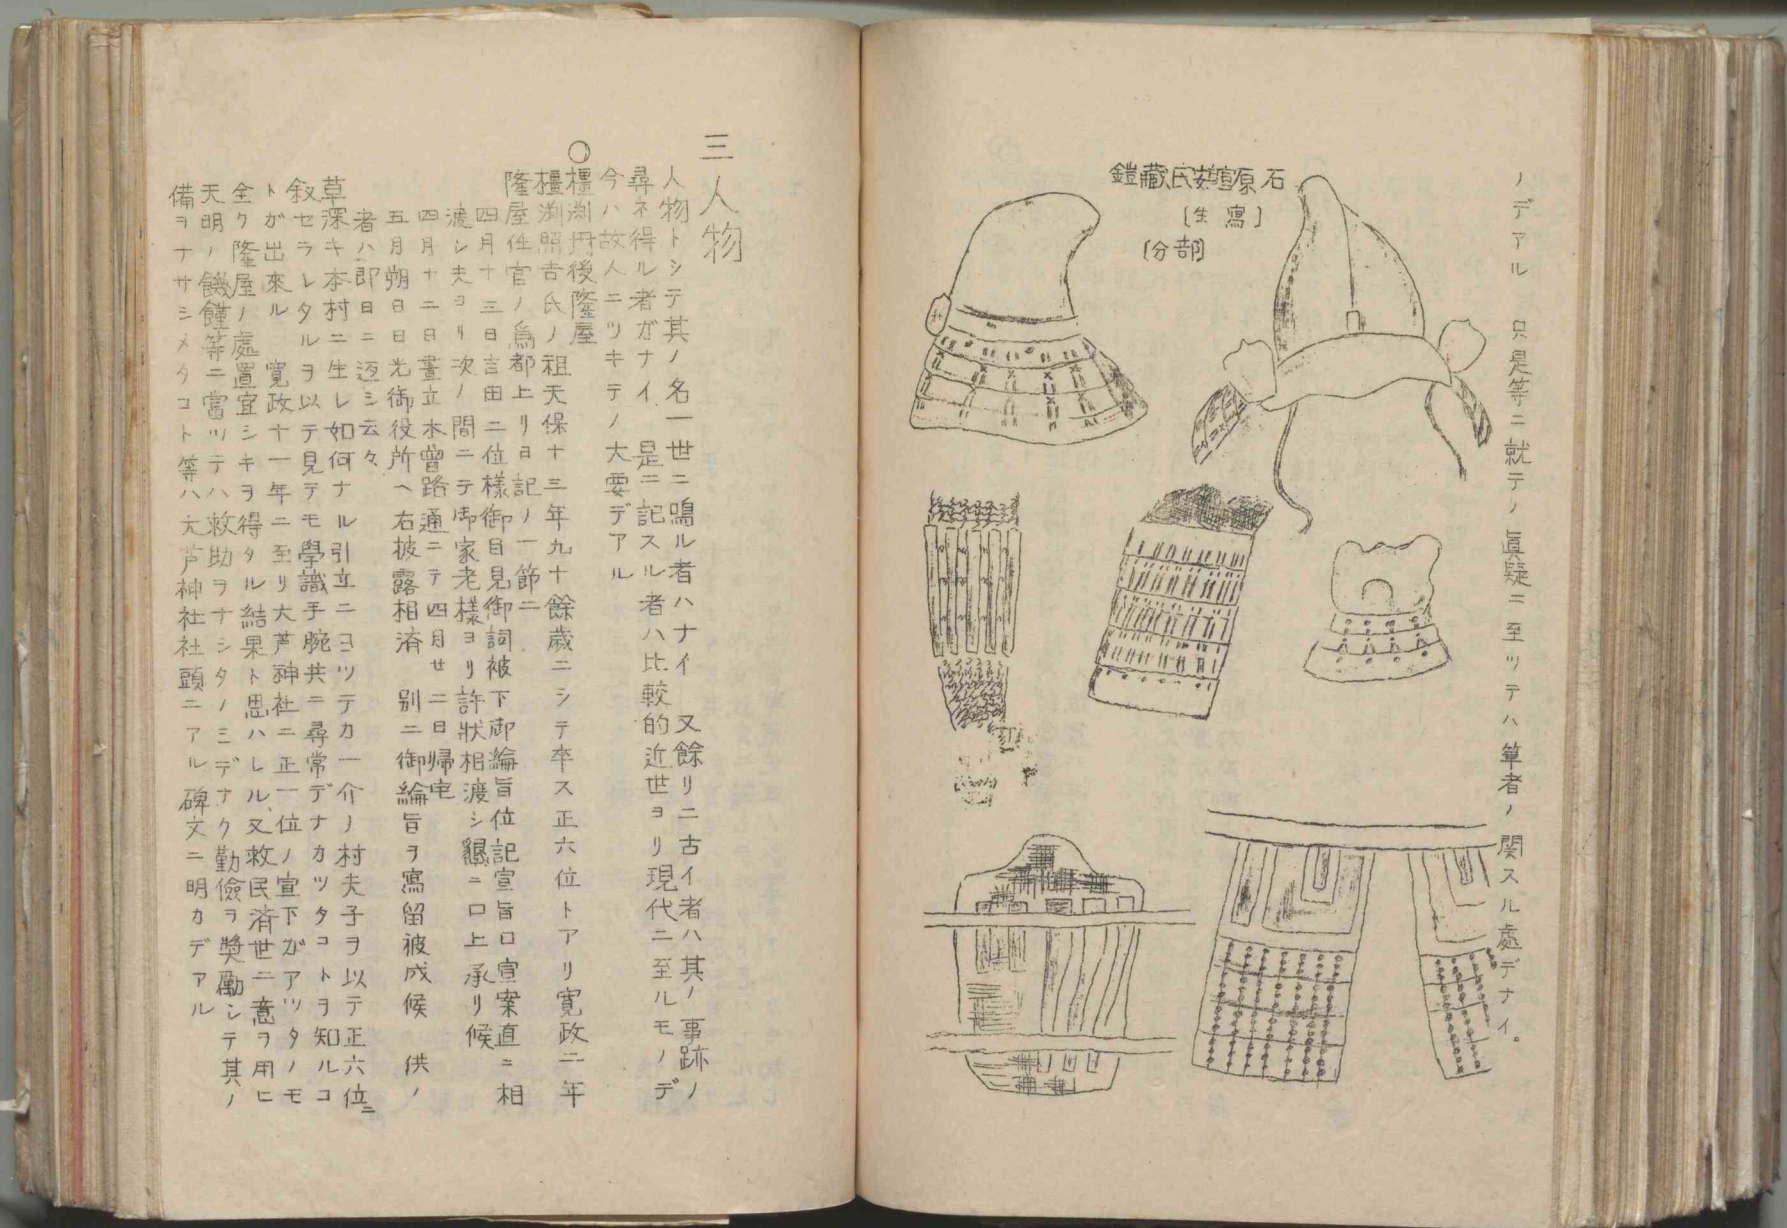 ノデアル 只是等ニ就テノ眞疑ニ至ッテハ筆者ノ関スル處デナイ。
石原宣英氏藏鎧
〔寫生〕
〔部分〕
三 人物
人物トシテ其ノ名一世ニ鳴ル者ハナイ 又餘リニ古イ者ハ其ノ事跡ノ
尋ネ得ル者ガナイ、是ニ記スル者ハ比較的近世ヨリ現代ニ至ルモノデ
今ハ故人ニツキテノ大要デアル
○橿渕丹後隆屋
橿渕照吉氏ノ祖天保十三年九十餘歳ニシテ卒ス正六位トアリ寛政二年
隆屋任官ノ為都上リヨ記ノ一節ニ
四月十三日吉田二位様御目見御詞被下御綸旨位記宣旨口宣案直ニ相
渡シ夫ヨリ次ノ間ニテ御家老様ヨリ許状相渡シ懇ニ口上承リ候
四月十二日晝立木曽路通ニテ四月廿二日帰宅
五月朔日日光御役所ヘ右披露相済 別ニ御綸旨ヲ寫留被成候 供ノ
者ハ即日ニ返シ云々
草深キ本村ニ生レ如何ナル引立ニヨツテカ一介ノ村夫子ヲ以テ正六位ニ
叙セラレタルヲ以テ見テモ學識手腕共ニ尋常デナカツタコトヲ知ルコ
トが出來ル 寛政十一年ニ至リ大芦神社ニ正一位ノ宣下がアツタノモ
全ク隆屋ノ處置宜シキヲ得タル結果ト思ハレル、又救民済世ニ意ヲ用ヒ
天明ノ饑饉等ニ當ッテハ救助ヲナシタノミデナク勤儉ヲ奬勵シテ其ノ
備ヲナサシメタコト等ハ大芦神社社頭ニアル碑文ニ明カデアル